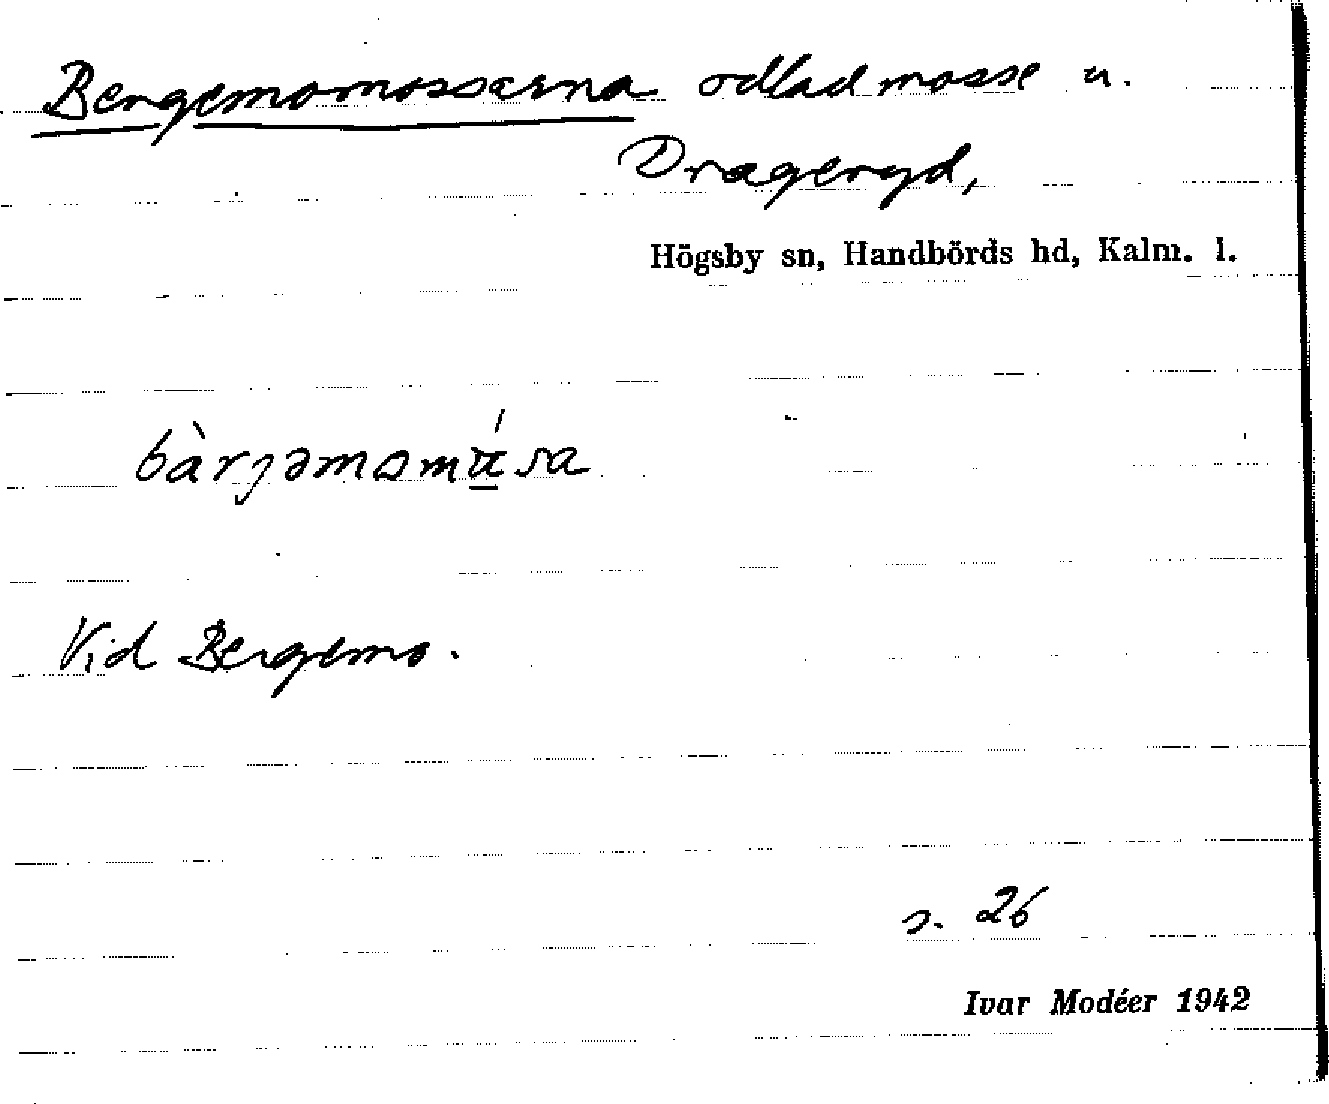 Bergemomossarna odlad mosse u.
Drageryd,
Högsby sn, Handbörds hd, Kalm. l.
Vid Bergemo.
s. 26
Ivar Modéer 1942